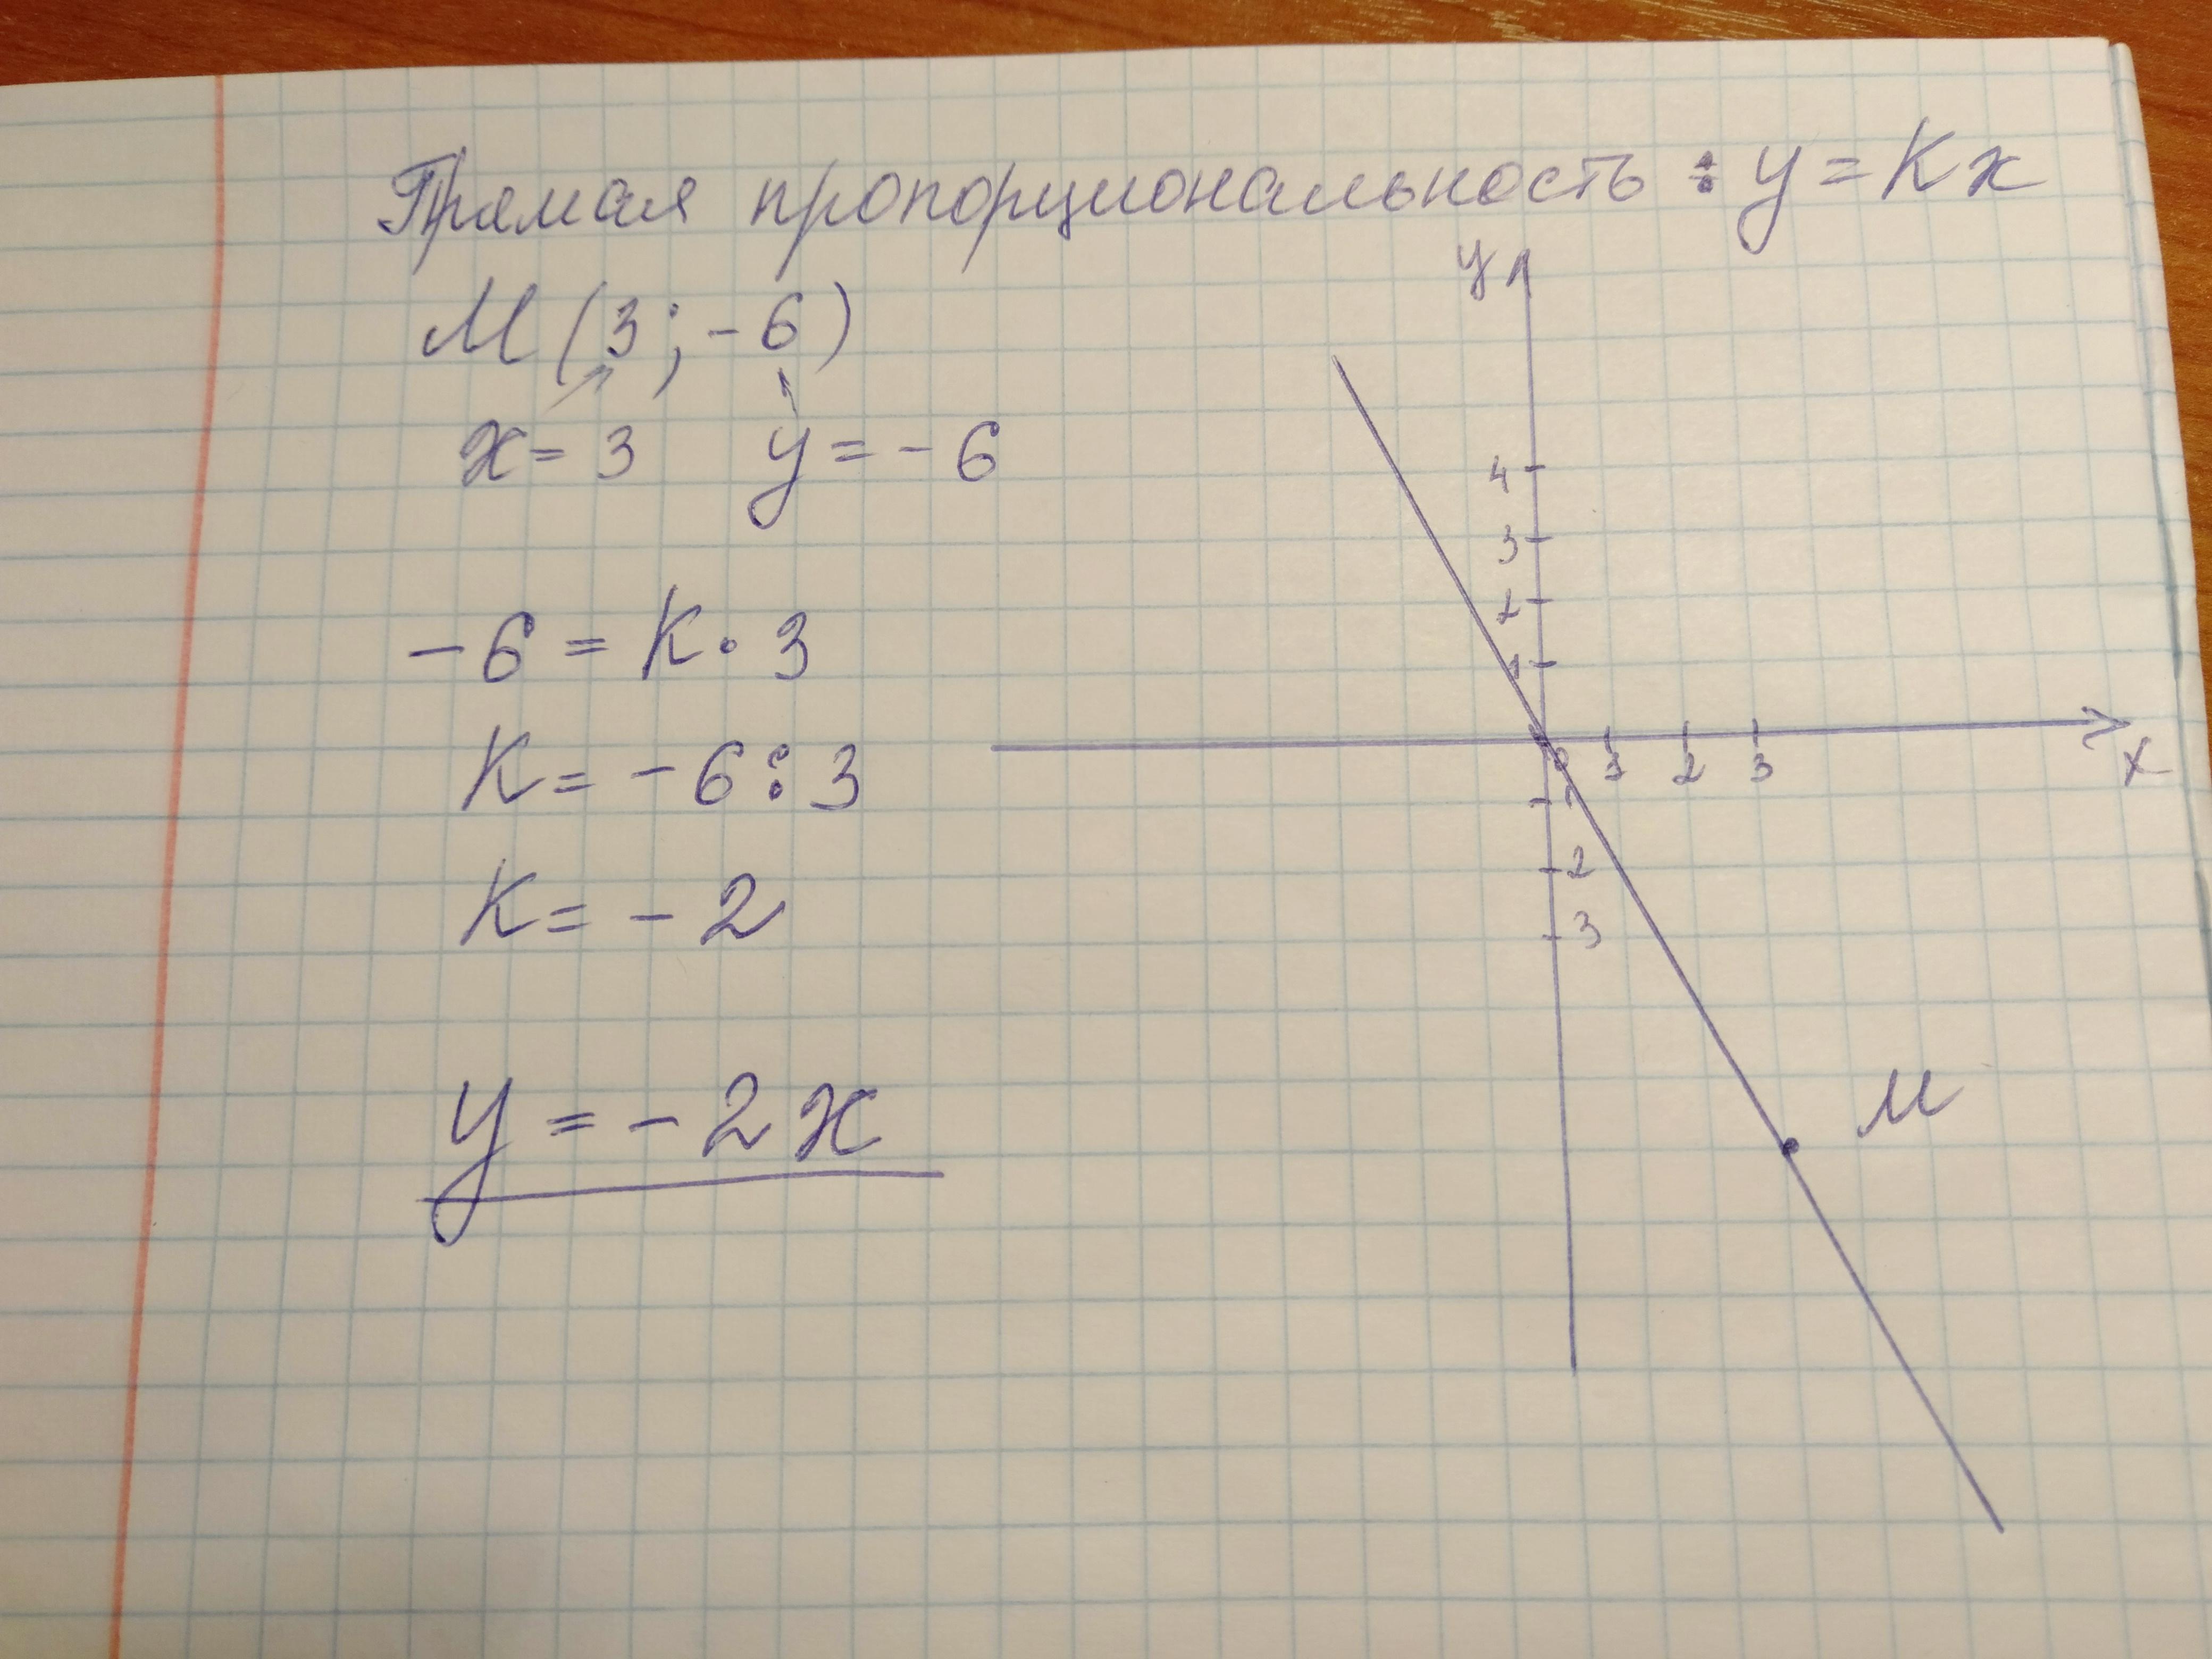 Прямая пропорциональность : y = Kx
M (3 ; -6)
x = 3 y = -6
-6 = K · 3
K = -6 : 3
K = -2
y = -2x
y
4
3
2
1
0 1 2 3
x
-1
-2
-3
M